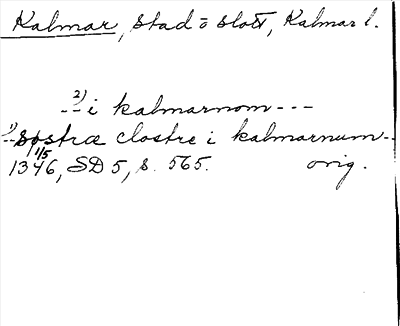 Kalmar, stad o slott, Kalmar l.
2)
-- i kalmarnom ---
1)
-- systræ clostre i kalmarnum --
1/5
1346, SD 5, s. 565. orig.